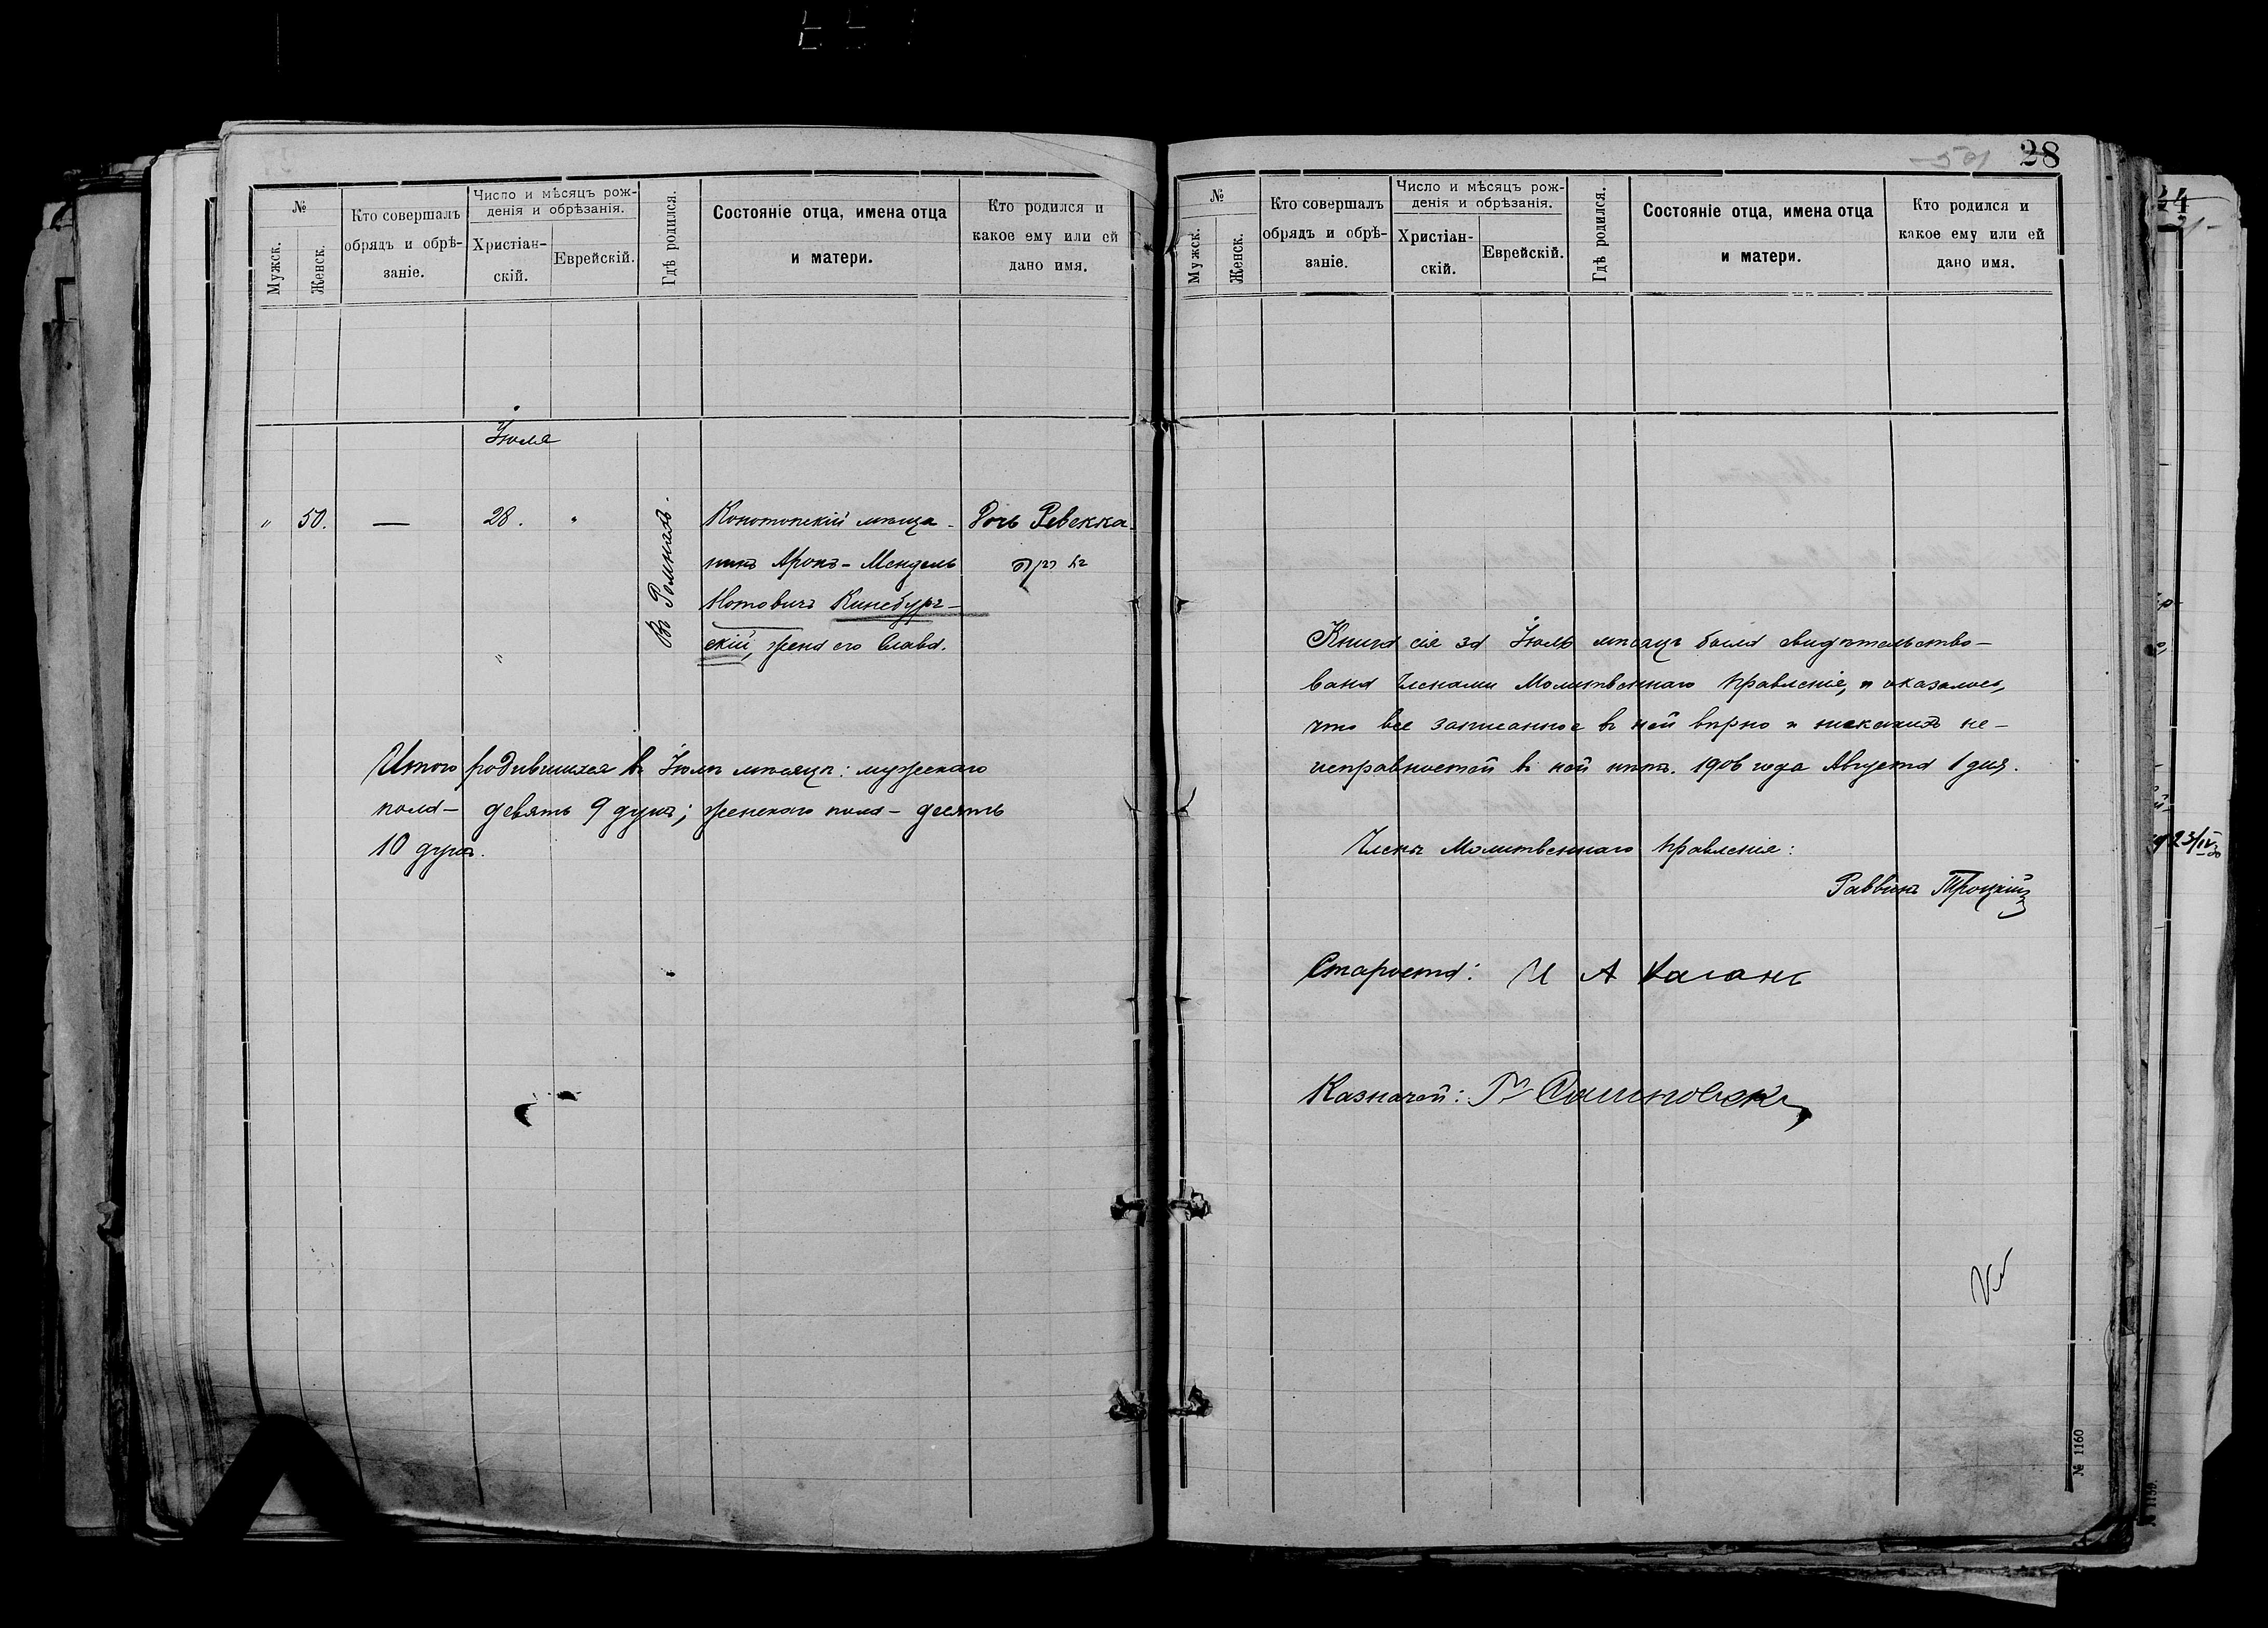 №
Мужск.
Женск.
Кто совершалъ
обрядъ и обрѣ-
заніе.
Число и мѣсяцъ рож-
денія и обрѣзанія.
Христіан-
скій.
Еврейскій.
Гдѣ родился.
Состояніе отца, имена отца
и матери.
Кто родился и
какое ему или ей
дано имя.
Іюля
" 50. — 28. "
Въ Ромнахъ.
Конотопскій мѣща-
нинъ Аронъ-Мендель
Нотовичъ Кинебург-
скій, жена его Слава.
Дочь Ревекка
רבקה
Итого родившихся въ Іюлѣ мѣсяцѣ: мужескаго
пола — девять 9 душъ; женскаго пола — десять
10 душъ.
28
№
Мужск.
Женск.
Кто совершалъ
обрядъ и обрѣ-
заніе.
Число и мѣсяцъ рож-
денія и обрѣзанія.
Христіан-
скій.
Еврейскій.
Гдѣ родился.
Состояніе отца, имена отца
и матери.
Кто родился и
какое ему или ей
дано имя.
Книга сія за Іюль мѣсяцъ была свидѣтельство-
вана Членами Молитвеннаго Правленія, и оказалось,
что все записанное въ ней вѣрно и никакихъ не-
исправностей въ ней нѣтъ. 1906 года Августа 1 дня.
Члены Молитвеннаго Правленія:
Раввинъ Троцкій
Староста: И А Каганъ
Казначей:
№ 1160